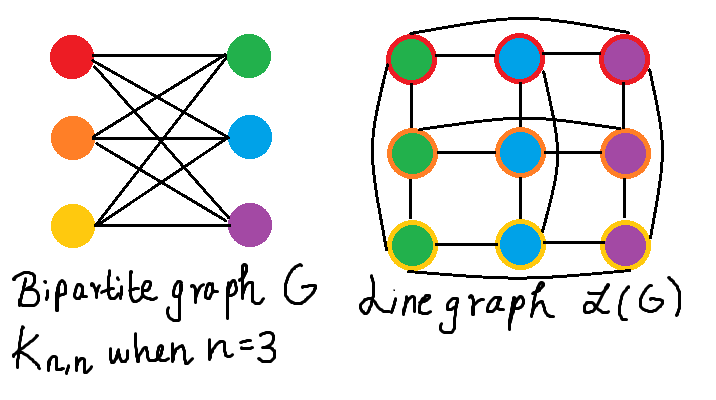 Bipartite graph G
K n,n when n=3
Line graph L(G)